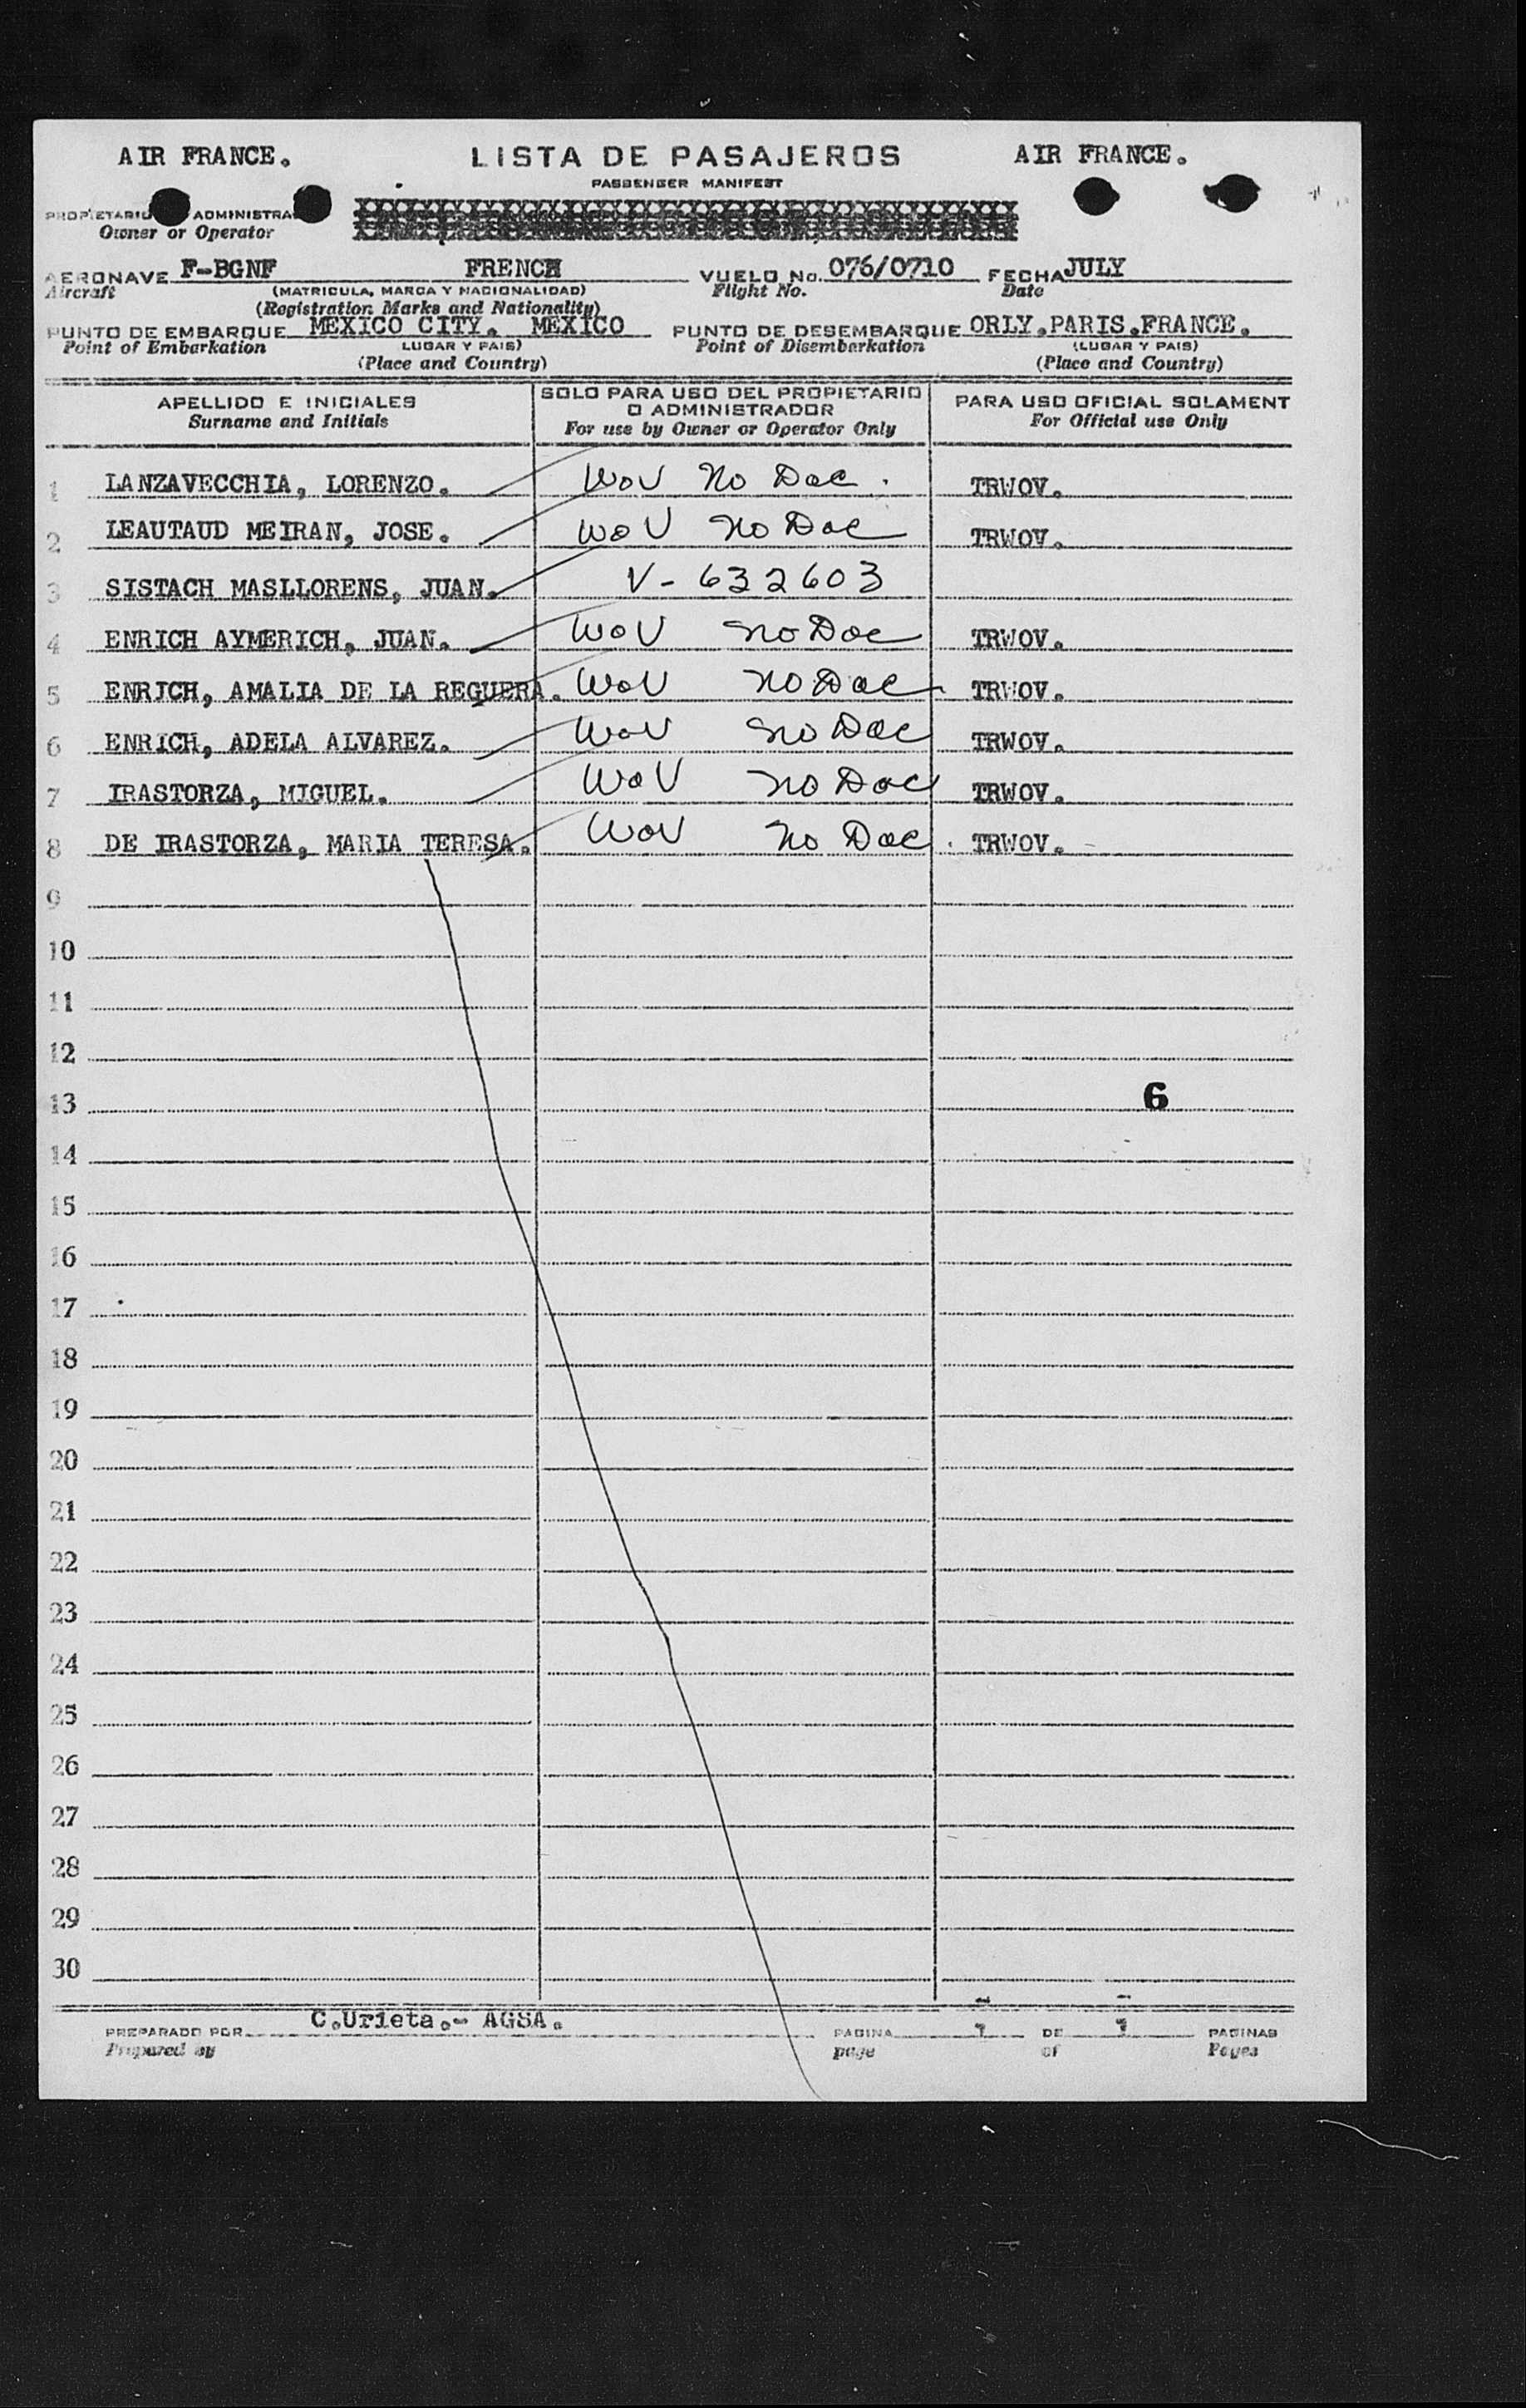 AIR FRANCE. LISTA DE PASAJEROS AIR FRANCE.
PASSENGER MANIFEST
PROPIETARIO ADMINISTRA
Owner or Operator
AERONAVE F-BGNF FRENCH VUELO No. 076/0710 FECHA JULY
Aircraft (MATRICULA, MARCA Y NACIONALIDAD) Flight No. Date
(Registration Marks and Nationality)
PUNTO DE EMBARQUE MEXICO CITY. MEXICO PUNTO DE DESEMBARQUE ORLY.PARIS.FRANCE.
Point of Embarkation LUGAR Y PAIS) Point of Disembarkation (LUGAR Y PAIS)
(Place and Country) (Place and Country)
APELLIDO E INICIALES SOLO PARA USO DEL PROPIETARIO PARA USO OFICIAL SOLAMENT
Surname and Initials O ADMINISTRADOR For Official use Only
For use by Owner or Operator Only
1 LANZAVECCHIA, LORENZO. WOV No Doc. TRWOV.
2 LEAUTAUD MEIRAN, JOSE. WOV No Doc TRWOV.
3 SISTACH MASLLORENS, JUAN. V-632603
4 ENRICH AYMERICH, JUAN. WOV No Doc TRWOV.
5 ENRICH, AMALIA DE LA REGUERA. WOV No Doc TRWOV.
6 ENRICH, ADELA ALVAREZ. WOV No Doc TRWOV.
7 IRASTORZA, MIGUEL. WOV No Doc TRWOV.
8 DE IRASTORZA, MARIA TERESA. WOV No Doc. TRWOV.
9
10
11
12
13 6
14
15
16
17
18
19
20
21
22
23
24
25
26
27
28
29
30
PREPARADO POR C.Urieta.- AGSA. PAGINA 1 DE 1 PAGINAS
Prepared by page of Pages